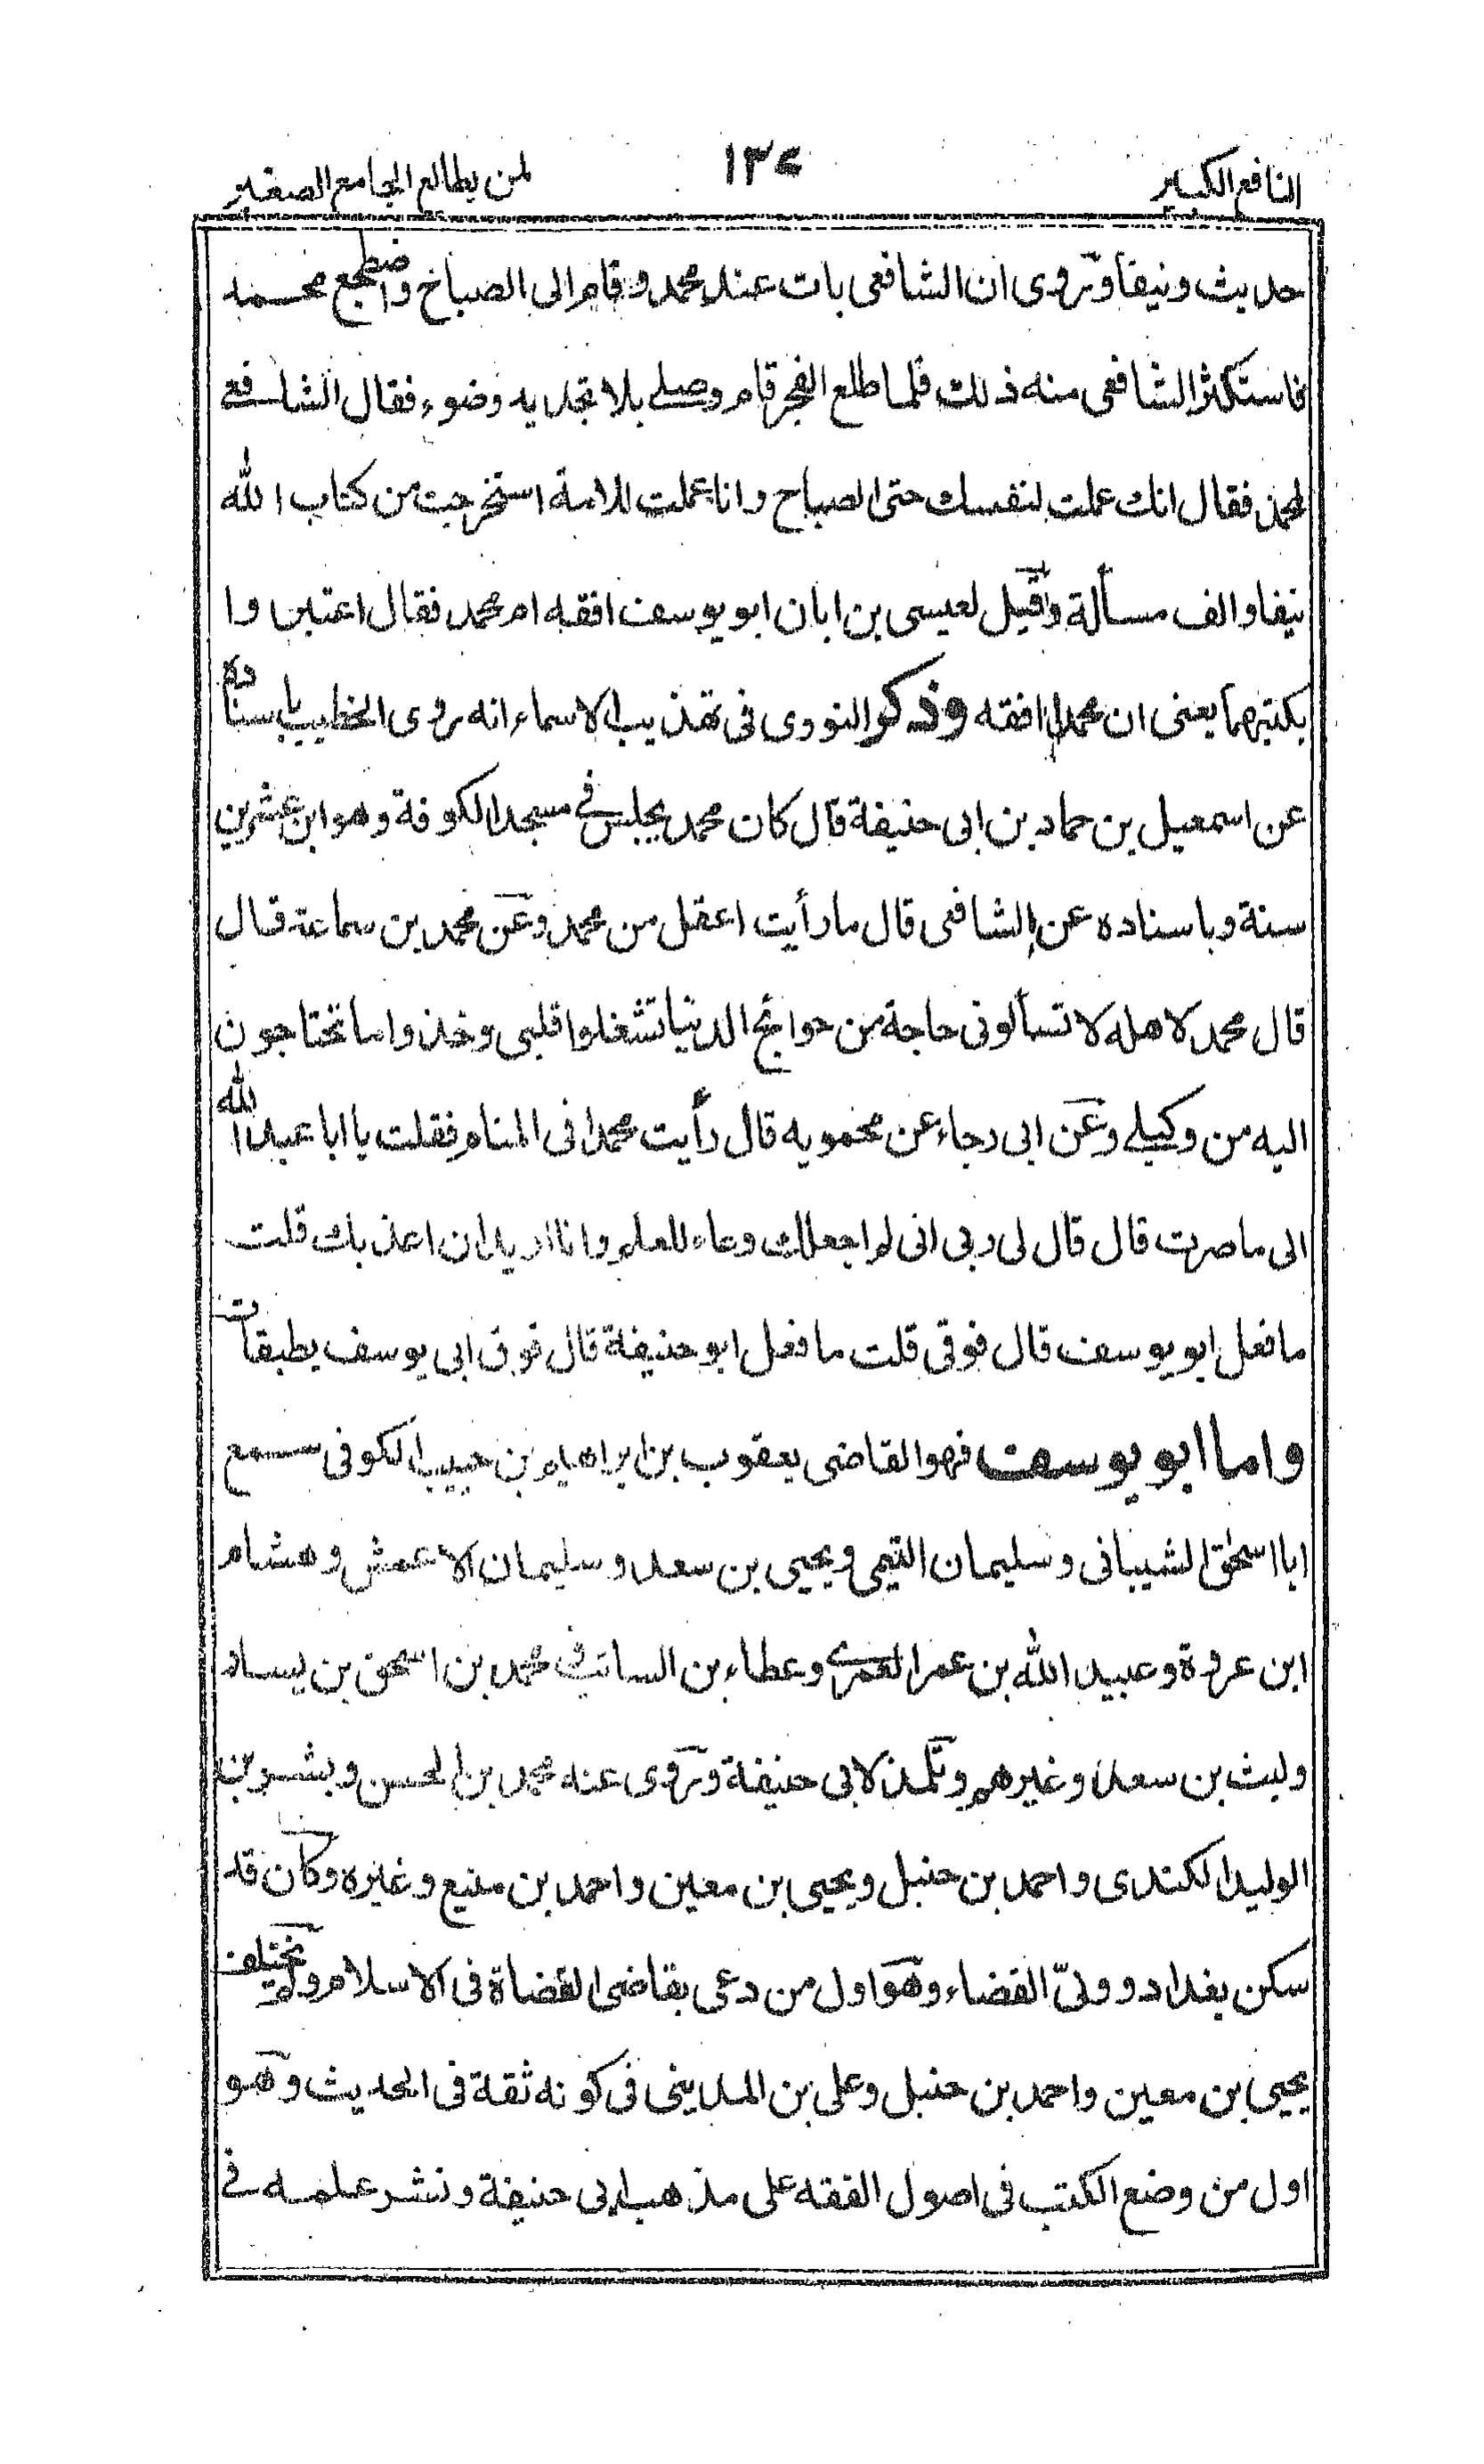 النافع الكبير ١٣٤ لمن يطالع الجامع الصغير
حديث ونيفا وروى ان الشافعى بات عند محمد وقام الى الصباح واضطجع محمد
فاستكثر الشافعى منه ذلك فلما طلع الفجر قام وصلى بلا تجديد وضوء فقال الشافعى
لمحمد فقال انك عملت لنفسك حتى الصباح وانا عملت للامة استخرجت من كتاب الله
نيفا والف مسألة وقيل لعيسى بن ابان ابو يوسف افقه ام محمد فقال اعتبروا
بكتبهما يعنى ان محمدا افقه وذكر النووى فى تهذيب الاسماء انه روى الخطيب باسناده
عن اسمعيل بن حماد بن ابى حنيفة قال كان محمد يجلس فى مسجد الكوفة وهو ابن عشرين
سنة وباسناده عن الشافعى قال ما رأيت اعقل من محمد وعن محمد بن سماعة قال
قال محمد لاهله لا تسألونى حاجة من حوائج الدنيا تشغلوا قلبى وخذوا ما تحتاجون
اليه من وكيلى وعن ابى رجاء عن محمويه قال رأيت محمدا فى المنام فقلت يا ابا عبد الله
الى ما صرت قال قال لى ربى انى لم اجعلك وعاء للعلم وانا اريد ان اعذبك قلت
ما فعل ابو يوسف قال فوقى قلت ما فعل ابو حنيفة قال فوق ابى يوسف بطبقات
واما ابو يوسف فهو القاضى يعقوب بن ابراهيم بن حبيب الكوفى سمع
ابا اسحق الشيبانى وسليمان التيمى ويحيى بن سعد وسليمان الاعمش وهشام
ابن عروة وعبيد الله بن عمر العمرى وعطاء بن السائب ومحمد بن اسحق بن يسار
وليث بن سعد وغيرهم وتلمذ لابى حنيفة وروى عنه محمد بن الحسن وبشر بن
الوليد الكندى واحمد بن حنبل ويحيى بن معين واحمد بن منيع وغيره وكان قد
سكن بغداد وولى القضاء وهو اول من دعى بقاضى القضاة فى الاسلام ولم يختلف
يحيى بن معين واحمد بن حنبل وعلى بن المدينى فى كونه ثقة فى الحديث وهو
اول من وضع الكتب فى اصول الفقه على مذهب ابى حنيفة ونشر علمه فى